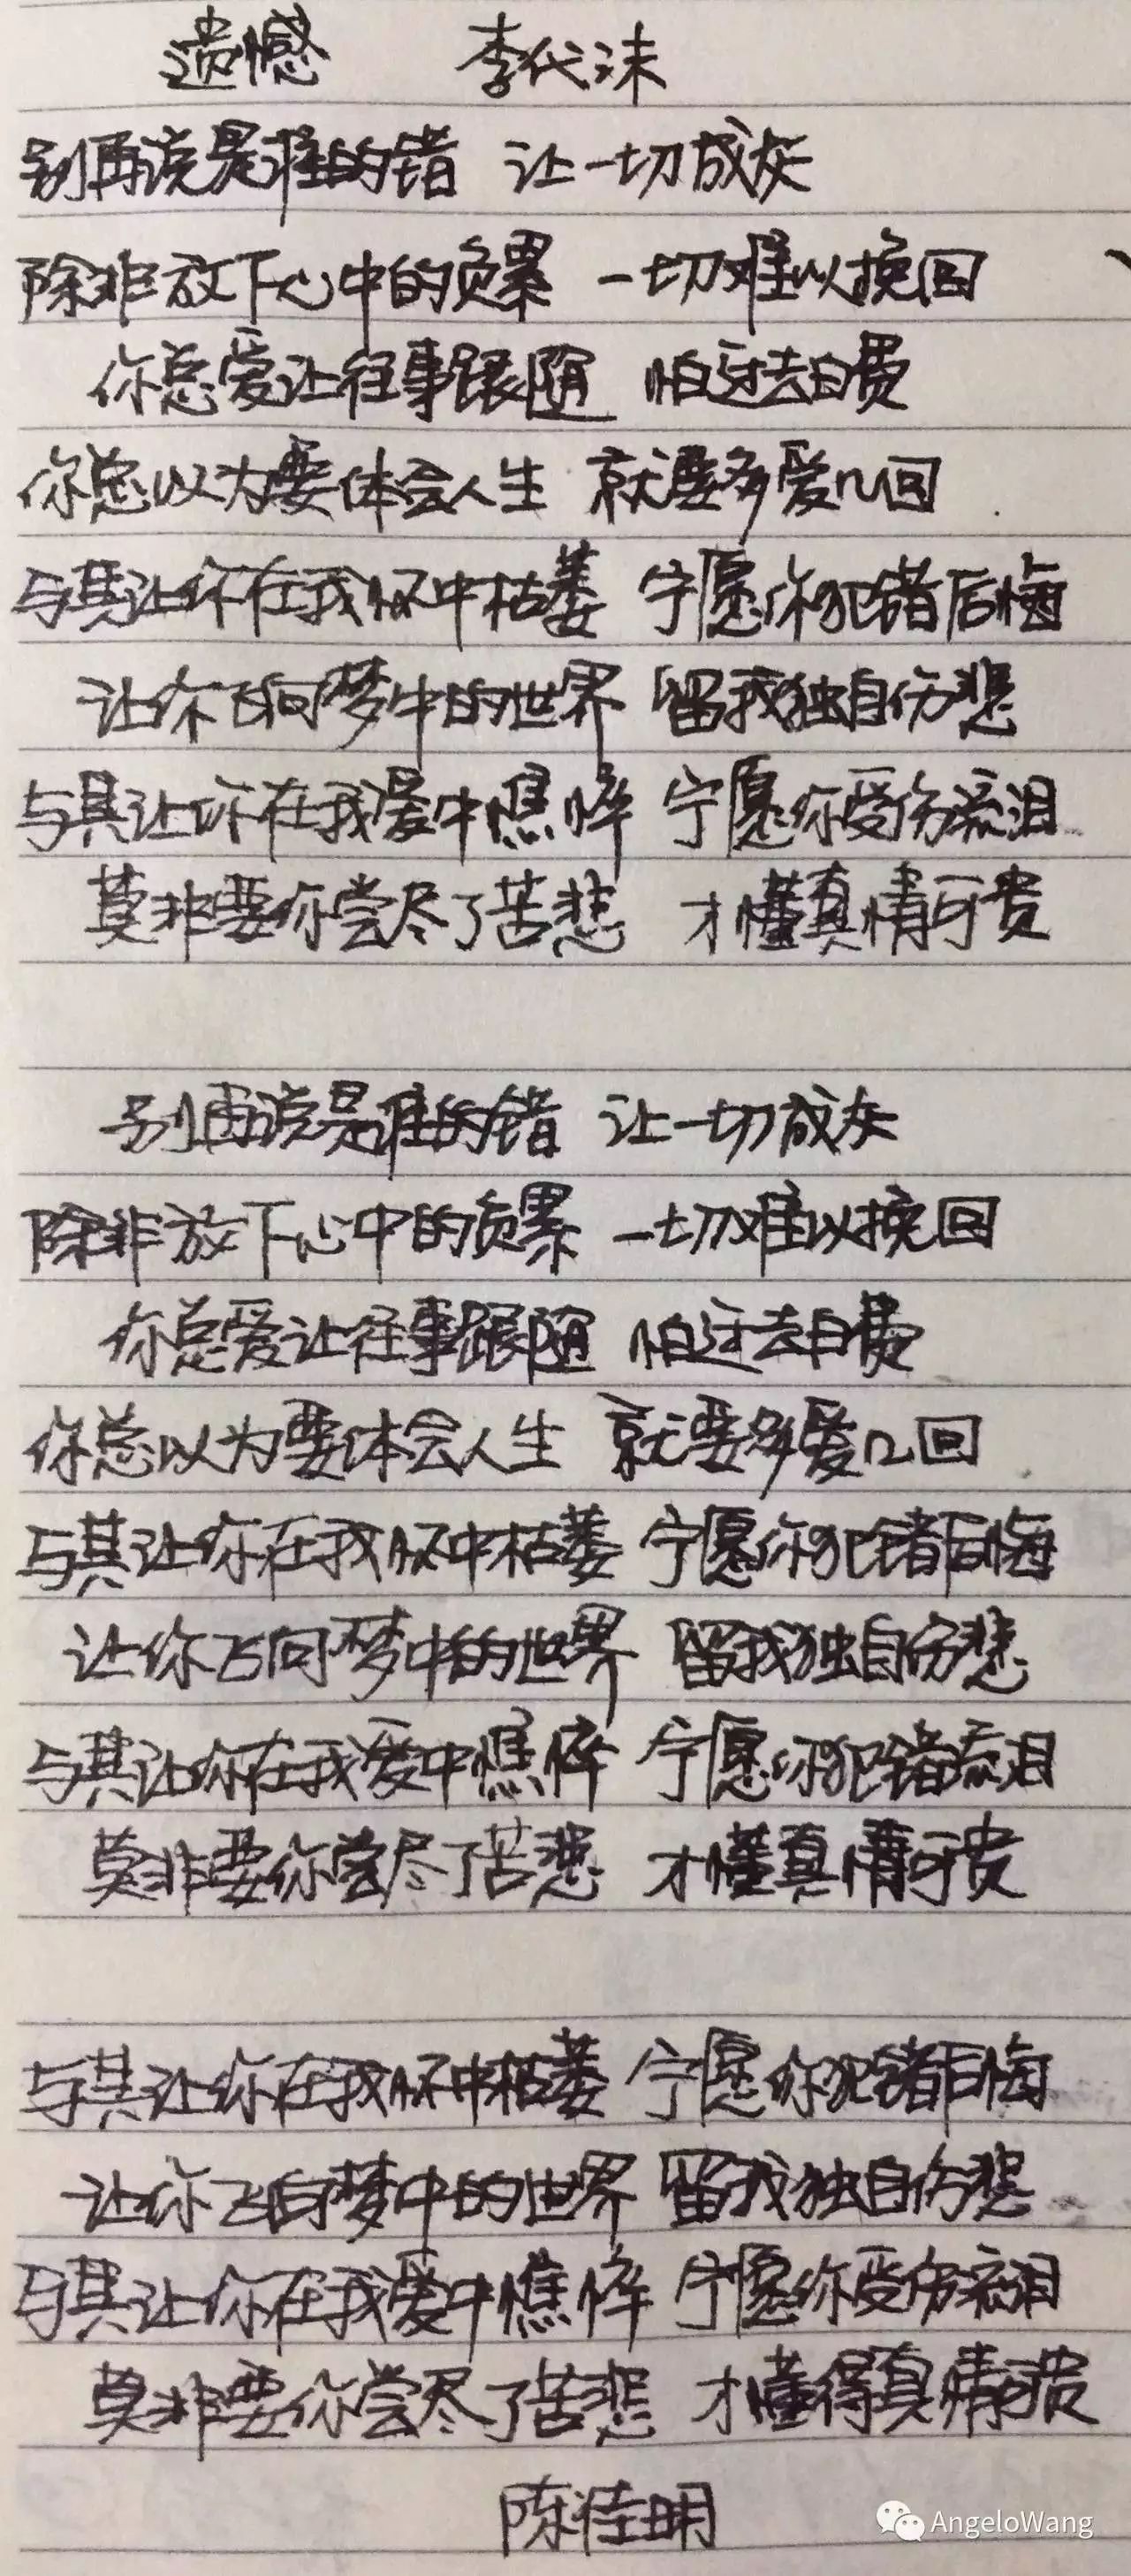 遗憾 李代沫
别再说是谁的错 让一切成灰
除非放下心中的负累 一切难以挽回
你总爱让往事跟随 怕过去白费
你总以为要体会人生 就要多爱几回
与其让你在我怀中枯萎 宁愿你犯错后悔
让你飞向梦中的世界 留我独自伤悲
与其让你在我爱中憔悴 宁愿你受伤流泪
莫非要你尝尽了苦悲 才懂真情可贵
别再说是谁的错 让一切成灰
除非放下心中的负累 一切难以挽回
你总爱让往事跟随 怕过去白费
你总以为要体会人生 就要多爱几回
与其让你在我怀中枯萎 宁愿你犯错后悔
让你飞向梦中的世界 留我独自伤悲
与其让你在我爱中憔悴 宁愿你犯错流泪
莫非要你尝尽了苦悲 才懂真情可贵
与其让你在我怀中枯萎 宁愿你犯错后悔
让你飞向梦中的世界 留我独自伤悲
与其让你在我爱中憔悴 宁愿你受伤流泪
莫非要你尝尽了苦悲 才懂得真情可贵
陈佳明
AngeloWang